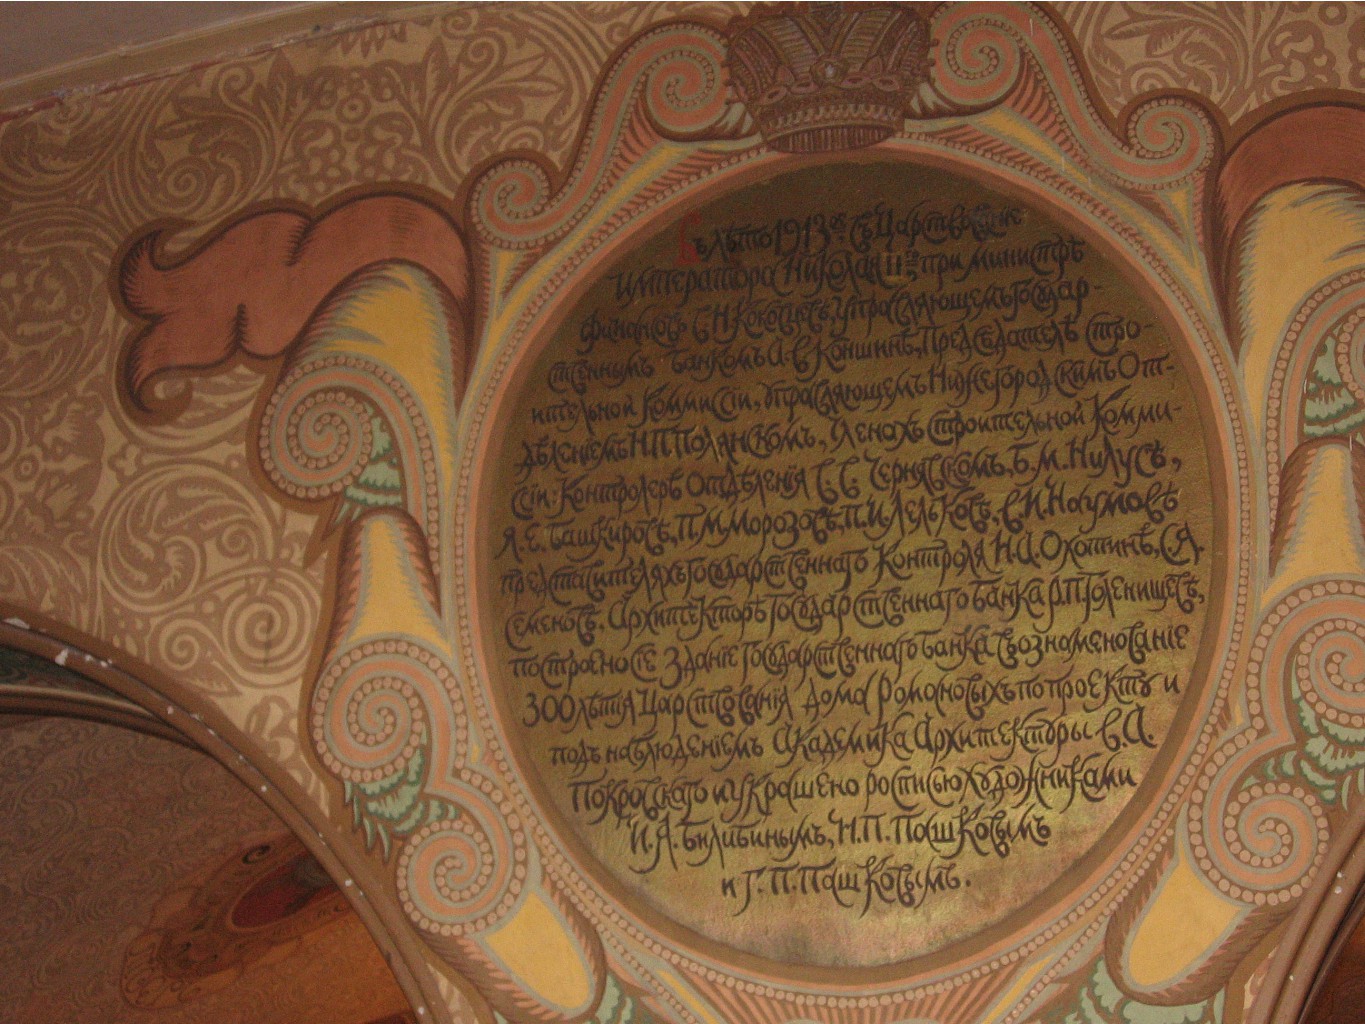 Въ лѣто 1913ое въ Царствованіе
Императора Николая IIго, при министрѣ
финансовъ В.Н. Коковцевѣ, управляющемъ Государ-
ственнымъ банкомъ А.В. Коншинѣ, Председателѣ стро-
ительной Коммиссіи, управляющемъ Нижегородскимъ От-
дѣленіемъ Н.П. Полянскомъ, членахъ строительной Комми-
ссіи: Контролерѣ Отдѣленія В.С. Чернявскомъ, Б.М. Нилусѣ,
Я.Е. Башкировѣ, П.М. Морозовѣ, П.И. Лельковѣ, В.И. Наумовѣ
представителяхъ Государственнаго Контроля Н.А. Охотинѣ, С.Я.
Семеновѣ, Архитекторѣ Государственнаго Банка Р.П. Голенищевѣ,
построено сіе зданіе Государственнаго банка въ ознаменованіе
300лѣтія Царствованія дома Романовыхъ по проекту и
подъ наблюденіемъ Академика Архитектуры В.А.
Покровскаго и украшено росписью художниками
И.Я. Билибинымъ, Н.П. Пашковымъ
и Г.П. Пашковымъ.